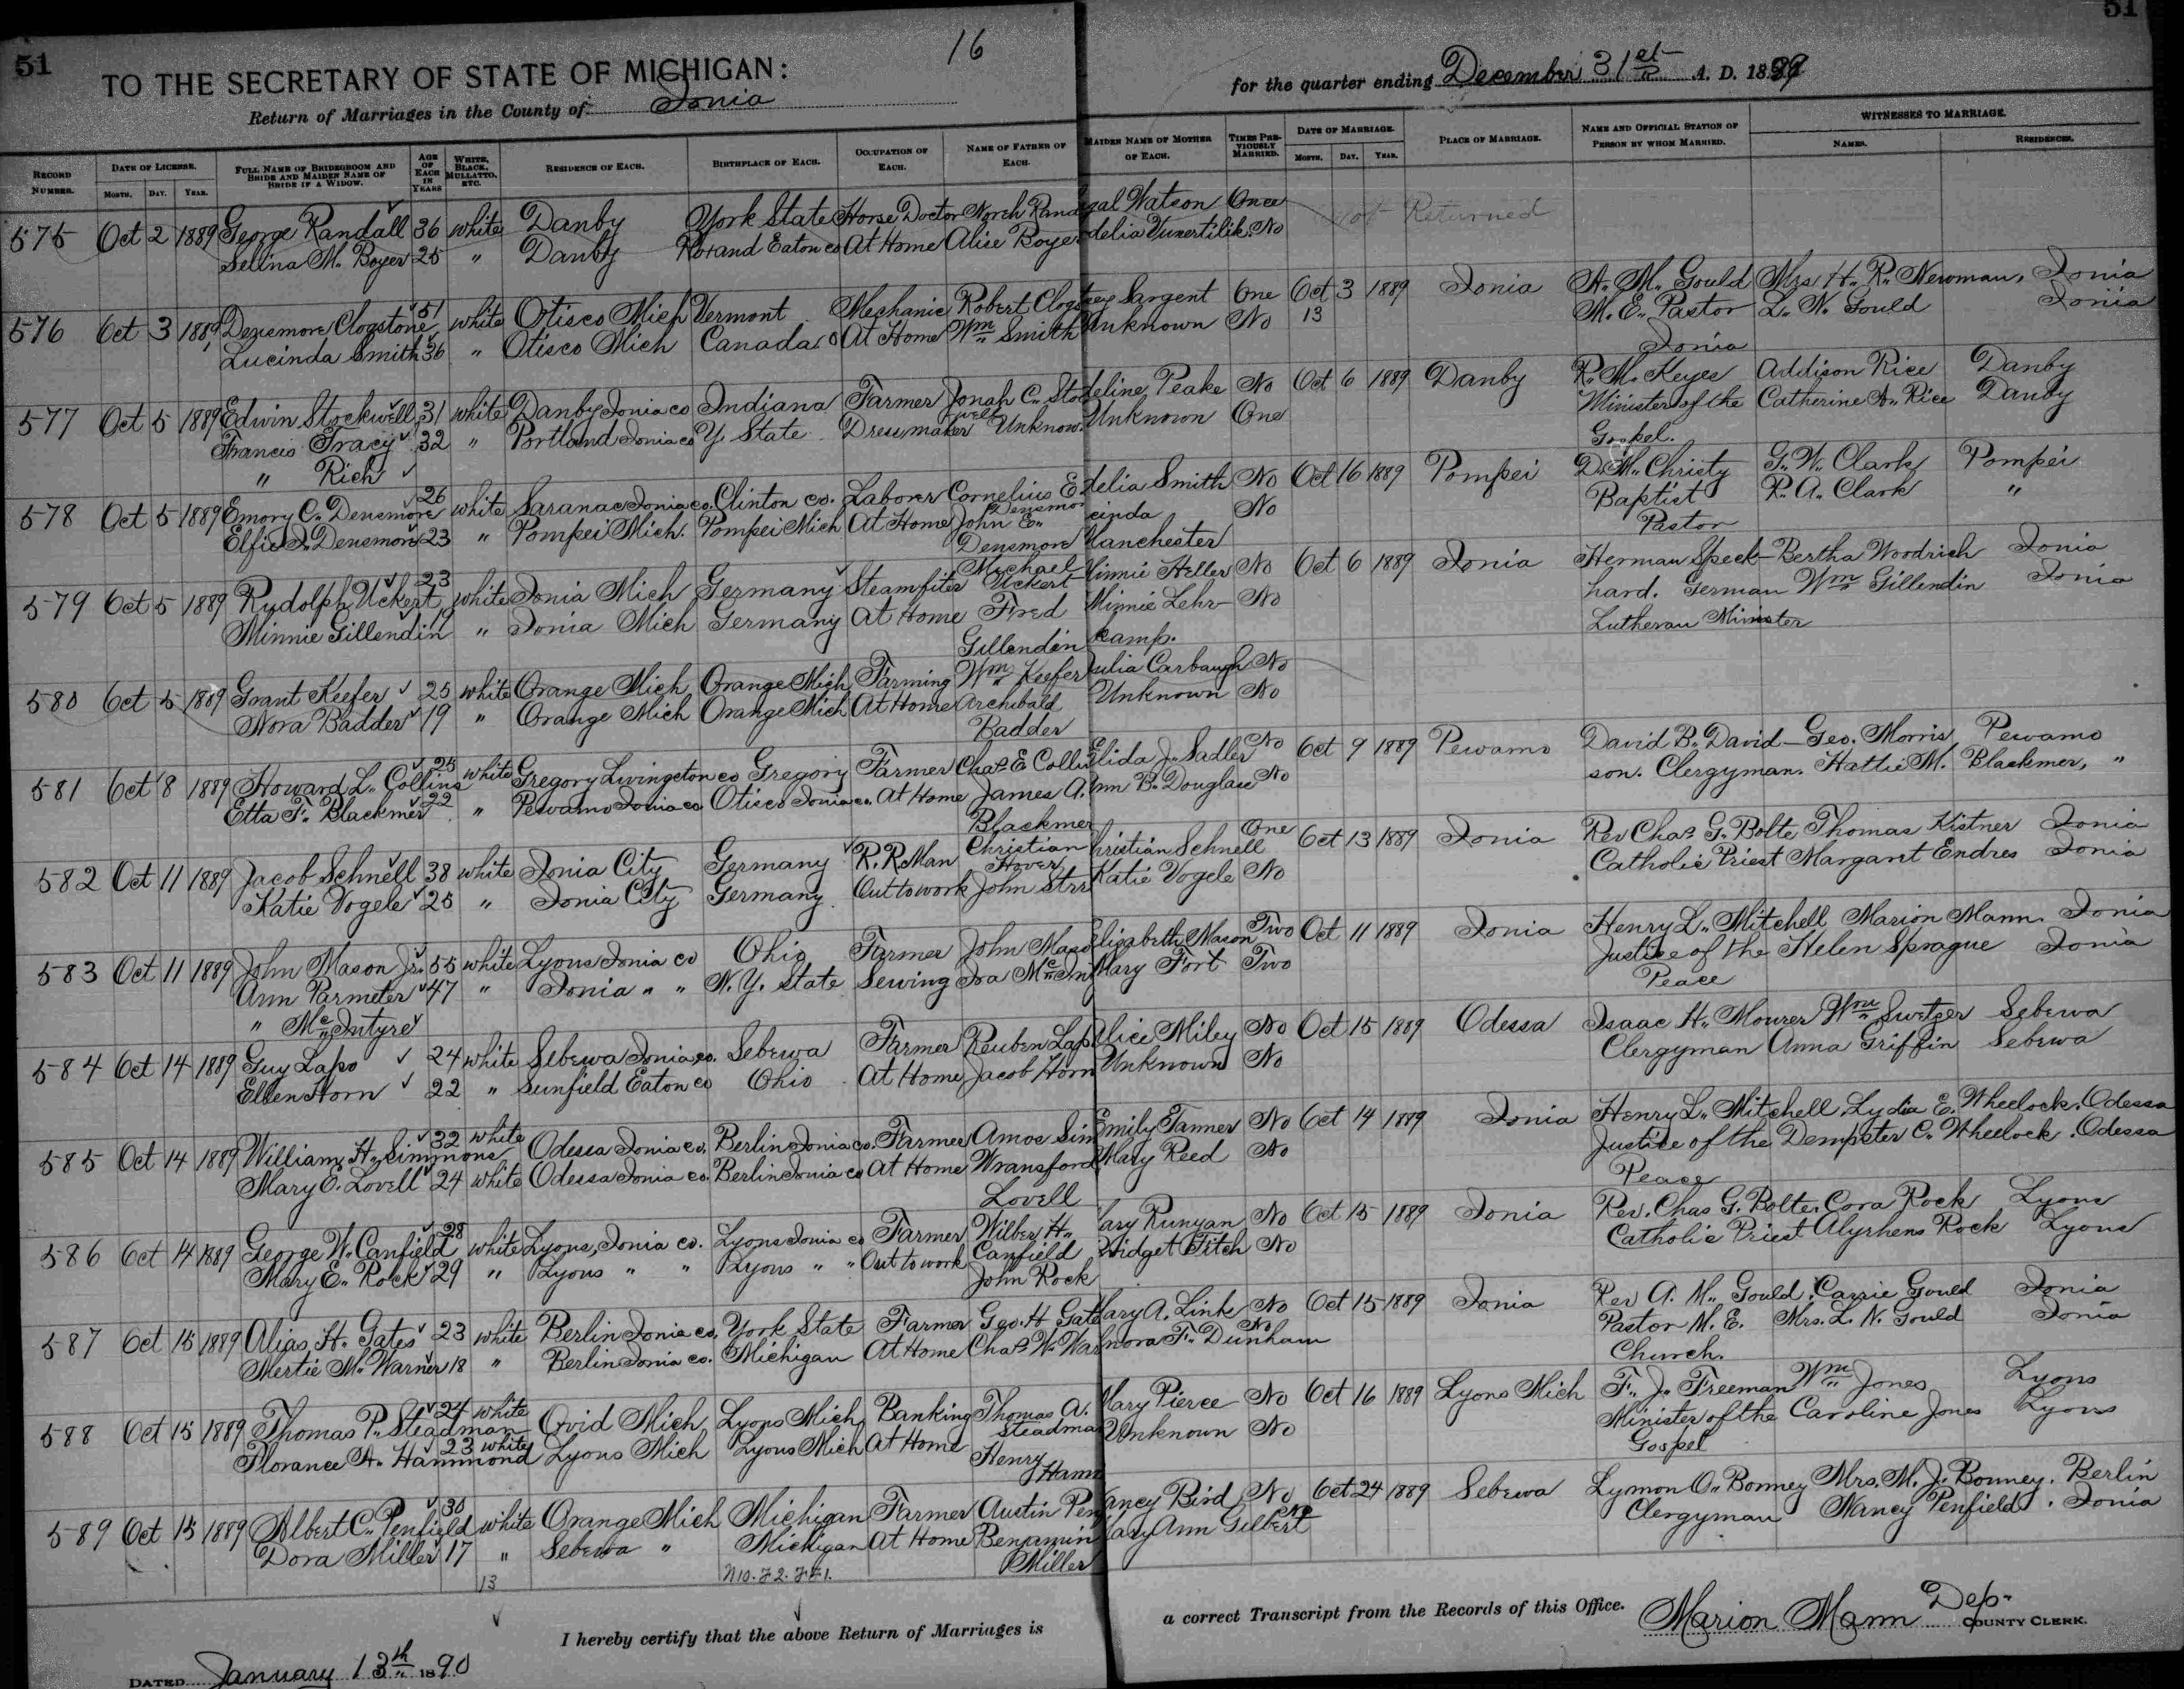 51
51
16
TO THE SECRETARY OF STATE OF MICHIGAN:
Return of Marriages in the County of Ionia
for the quarter ending December 31st A. D. 1889
RECORD NUMBER. DATE OF LICENSE. MONTH. DAY. YEAR. FULL NAME OF BRIDEGROOM AND BRIDE AND MAIDEN NAME OF BRIDE IF A WIDOW. AGE OF EACH IN YEARS WHITE, BLACK, MULLATTO, ETC. RESIDENCE OF EACH. BIRTHPLACE OF EACH. OCCUPATION OF EACH. NAME OF FATHER OF EACH. MAIDEN NAME OF MOTHER OF EACH. TIMES PREVIOUSLY MARRIED. DATE OF MARRIAGE. MONTH. DAY. YEAR. PLACE OF MARRIAGE. NAME AND OFFICIAL STATION OF PERSON BY WHOM MARRIED. WITNESSES TO MARRIAGE. NAMES. RESIDENCES.
575 Oct 2 1889 George Randall 36 white Danby York State Horse Doctor Norch Rand gal Watson Once Not Returned
Selina M. Boyer 25 " Danby Roxand Eaton co At Home Alise Boyer delia No
576 Oct 3 1889 Densmore Clogstone 51 white Otisco Mich Vermont Mechanic Robert Clogs Sargent One Oct 3 1889 Ionia A. M. Gould Mrs H. R. Newman, Ionia
Lucinda Smith 36 " Otisco Mich Canada O At Home Wm Smith Unknown No 13 M. E. Pastor L. N. Gould Ionia
Ionia
577 Oct 5 1889 Edwin Stockwell 31 white Danby Ionia co Indiana Farmer Jonah C. Stockwell deline Peake No Oct 6 1889 Danby R. M. Keyes Addison Rice Danby
Francis Tracy 32 " Portland Ionia co Y. State Dressmaker Unknow. Unknown One Minister of the Catherine A. Rice Danby
" Rich Gospel.
578 Oct 5 1889 Emory C. Densmore 26 white Saranac Ionia co. Clinton co. Laborer Cornelius E. Densmor delia Smith No Oct 16 1889 Pompei D. M. Christy G. W. Clark Pompei
Elfie I. Densmore 23 " Pompei Mich. Pompei Mich At Home John E. cinda No Baptist R. A. Clark "
Densmore Manchester Pastor
579 Oct 5 1889 Rudolph Uckert 23 white Ionia Mich Germany Steamfiter Michael Uckert Minnie Heller No Oct 6 1889 Ionia Herman Speck- Bertha Woodrich Ionia
Minnie Gillendin 19 " Ionia Mich Germany At Home Fred Minnie Lehr- No hard. German Wm Gillendin Ionia
Gillendin kamp. Lutheran Minister
580 Oct 5 1889 Grant Keefer 25 white Orange Mich Orange Mich Farming Wm Keefer Julia Carbaugh No
Nora Badder 19 " Orange Mich Orange Mich At Home Archibald Unknown No
Badder
581 Oct 8 1889 Howard L. Collins 25 white Gregory Livingston co Gregory Farmer Chas E Collin Elida J. Sadler No Oct 9 1889 Pewamo David B. David- Geo. Morris Pewamo
Etta F. Blackmer 22 " Pewamo Ionia co Otisco Ionia co. At Home James A. Ann B. Douglass No son. Clergyman. Hattie M. Blackmer, "
Blackmer
582 Oct 11 1889 Jacob Schnell 38 white Ionia City Germany R. R Man Christian Hover hristian Schnell One Oct 13 1889 Ionia Rev Chas G. Bolte Thomas Kistner Ionia
Katie Vogele 25 " Ionia City Germany Out to work John Strr Katie Vogele No Catholic Priest Margaret Endres Ionia
583 Oct 11 1889 John Mason Jr. 55 white Lyons Ionia co Ohio Farmer John Maso Elizabeth Mason Two Oct 11 1889 Ionia Henry L. Mitchell Marion Mann Ionia
Ann Parmeter 47 " Ionia " " N. Y. State Sewing Ira McInt Mary Fort Two Justice of the Helen Sprague Ionia
" McIntyre Peace
584 Oct 14 1889 Guy Lapo 24 white Sebewa Ionia co. Sebewa Farmer Reuben Lap Alice Miley No Oct 15 1889 Odessa Isaac H. Mourer Wm Swetzer Sebewa
Ellen Horn 22 " Sunfield Eaton co Ohio At Home Jacob Horn Unknown No Clergyman Anna Griffin Sebewa
585 Oct 14 1889 William H. Simmons 32 white Odessa Ionia co. Berlin Ionia co. Farmer Amos Sim Emily Tanner No Oct 14 1889 Ionia Henry L. Mitchell Lydia E. Wheelock. Odessa
Mary E. Lovell 24 white Odessa Ionia co. Berlin Ionia co At Home Wransford Mary Reed No Justice of the Dempster C. Wheelock. Odessa
Lovell Peace
586 Oct 14 1889 George W. Canfield 28 white Lyons, Ionia co. Lyons Ionia co Farmer Wilber H. ary Runyan No Oct 15 1889 Ionia Rev. Chas G. Bolte. Cora Rock Lyons
Mary E. Rock 29 " Lyons " " Lyons " " Out to work Canfield ridget Fitch No Catholic Priest Rock Lyons
John Rock
587 Oct 15 1889 Alias H. Gates 23 white Berlin Ionia co. York State Farmer Geo. H Gate Mary A. Link No Oct 15 1889 Ionia Rev A. M. Gould Carrie Gould Ionia
Mertie M. Warner 18 " Berlin Ionia co. Michigan At Home Chas W. War nora F. Dunham No Pastor M. E. Mrs. L. N. Gould Ionia
Church.
588 Oct 15 1889 Thomas P. Steadman 24 white Ovid Mich Lyons Mich Banking Thomas A. Steadma Mary Pierce No Oct 16 1889 Lyons Mich F. J. Freeman Wm Jones Lyons
Florance A. Hammond 23 white Lyons Mich Lyons Mich At Home Henry Unknown No Minister of the Caroline Jones Lyons
Hamm Gospel
589 Oct 15 1889 Albert C. Penfield 30 white Orange Mich Michigan Farmer Austin Pen ancy Bird No Oct 24 1889 Sebewa Lymon O. Bonney Mrs. M. J. Bonney. Berlin
Dora Miller 17 " Sebewa " Michigan At Home Benjamin Mary Ann Gilbert No Clergyman Nancy Penfield. Ionia
Miller
13
I hereby certify that the above Return of Marriages is a correct Transcript from the Records of this Office.
Marion Mann Dep. COUNTY CLERK.
DATED January 13th 1890